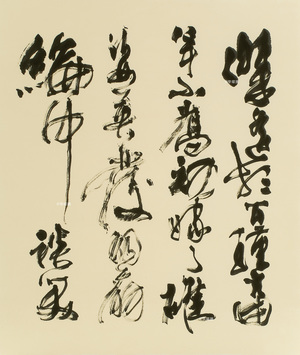 傑遥想公瑾當
年小喬初嫁了雄
姿英發羽扇
綸巾談笑